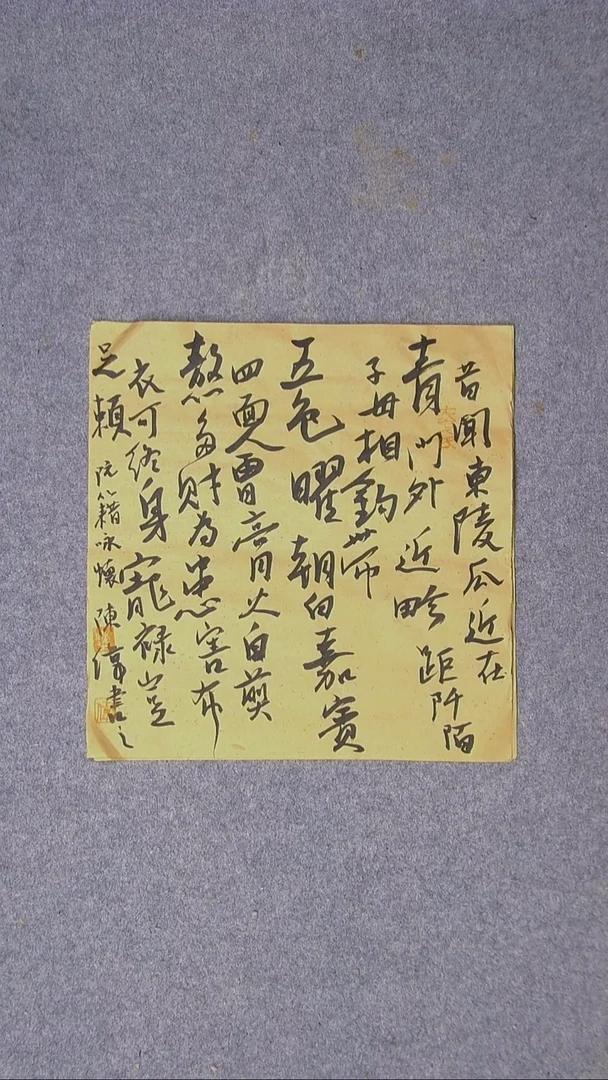 昔聞東陵瓜近在
青門外近畛距阡陌
子母相鈎帶
五色曜朝日嘉賓
四面會膏火自煎
熬多財為患害布
衣可終身寵祿豈
足賴 阮籍咏懷 陳書之